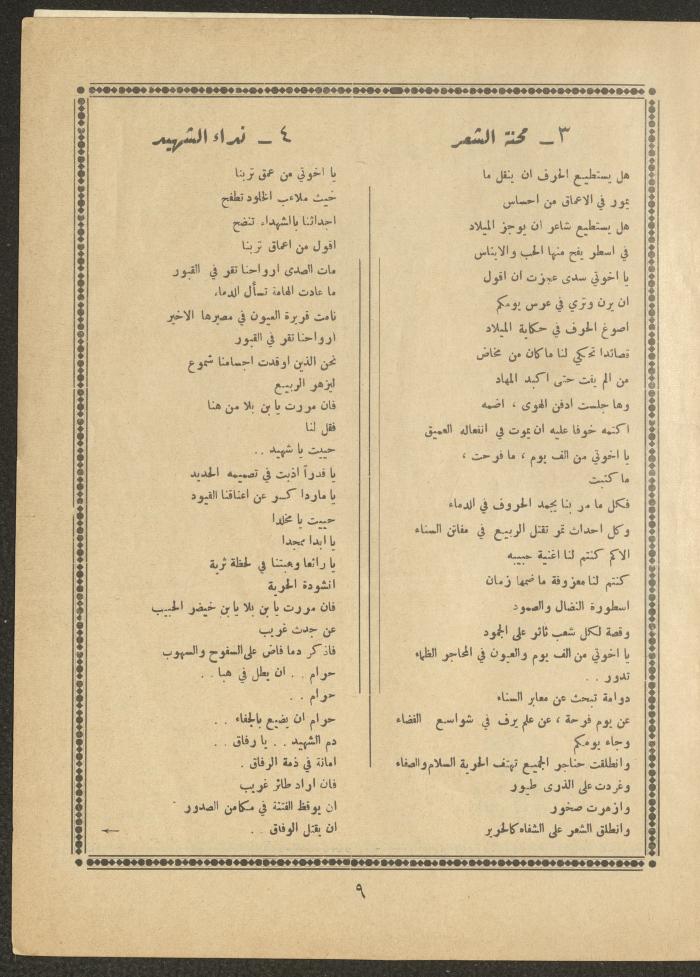 ٣ ـ محنة الشعر
هل يستطيع الحرف ان ينقل ما
يمور في الاعماق من احساس
هل يستطيع شاعر ان يوجز الميلاد
في اسطر يفح منها الحب والايناس
يا اخوتي سدى عجزت ان اقول
ان يرن وتري في عرس يومكم
اصوغ الحرف في حكاية الميلاد
قصائدا تحكي لنا ما كان من مخاض
من الم يفت حتى اكبد المهاد
وها جلست ادفن الهوى ، اضمه
اكتمه خوفا عليه ان يموت في انفعاله العميق
يا اخوتي من الف يوم ، ما فرحت ،
ما كتبت
فكل ما مر بنا يجمد الحروف في الدماء
وكل احداث تمر تقتل الربيع في مفاتن السناء
الاكم كنتم لنا اغنية حبيبه
كنتم لنا معزوفة ما ضمها زمان
اسطورة النضال والصمود
وقصة لكل شعب ثائر على الجمود
يا اخوتي من الف يوم والعيون في المحاجر الظماء
تدور . .
دوامة تبحث عن معابر السناء
عن يوم فرحة ، عن علم يرف في شواسع الفضاء
وجاء يومكم
وانطلقت حناجر الجميع تهتف الحرية السلام والصفاء
وغردت على الذرى طيور
وازهرت صخور
وانطلق الشعر على الشفاه كالحرير
٤ ـ نداء الشهيد
يا اخوتي من عمق تربنا
حيث ملاعب الخلود تطفح
اجداثنا بالشهداء تنضح
اقول من اعماق تربنا
مات الصدى ارواحنا تقر في القبور
ما عادت الهامة تسأل الدماء
نامت قريرة العيون في مصيرها الاخير
ارواحنا تقر في القبور
نحن الذين اوقدت اجسامنا شموع
ليزهر الربيع
فان مررت يا بن بلا من هنا
فقل لنا
حييت يا شهيد . .
يا قدراً اذبت في تصميمه الحديد
يا ماردا كسر عن اعناقنا القيود
حييت يا مخلدا
يا ابدا ممجدا
يا رائعا وهبتنا في لحظة ثرية
انشودة الحرية
فان مررت يا بن بلا يا بن خيضر الحبيب
عن جدث غريب
فاذكر دما فاض على السفوح والسهوب
حرام . . ان يطل في هبا . .
حرام . .
حرام ان يضيع بالجفاء . .
دم الشهيد . . يا رفاق . .
امانة في ذمة الرفاق .
فان اراد طائر غريب
ان يوقظ الفتنة في مكامن الصدور
ان يقتل الوفاق . .
٩